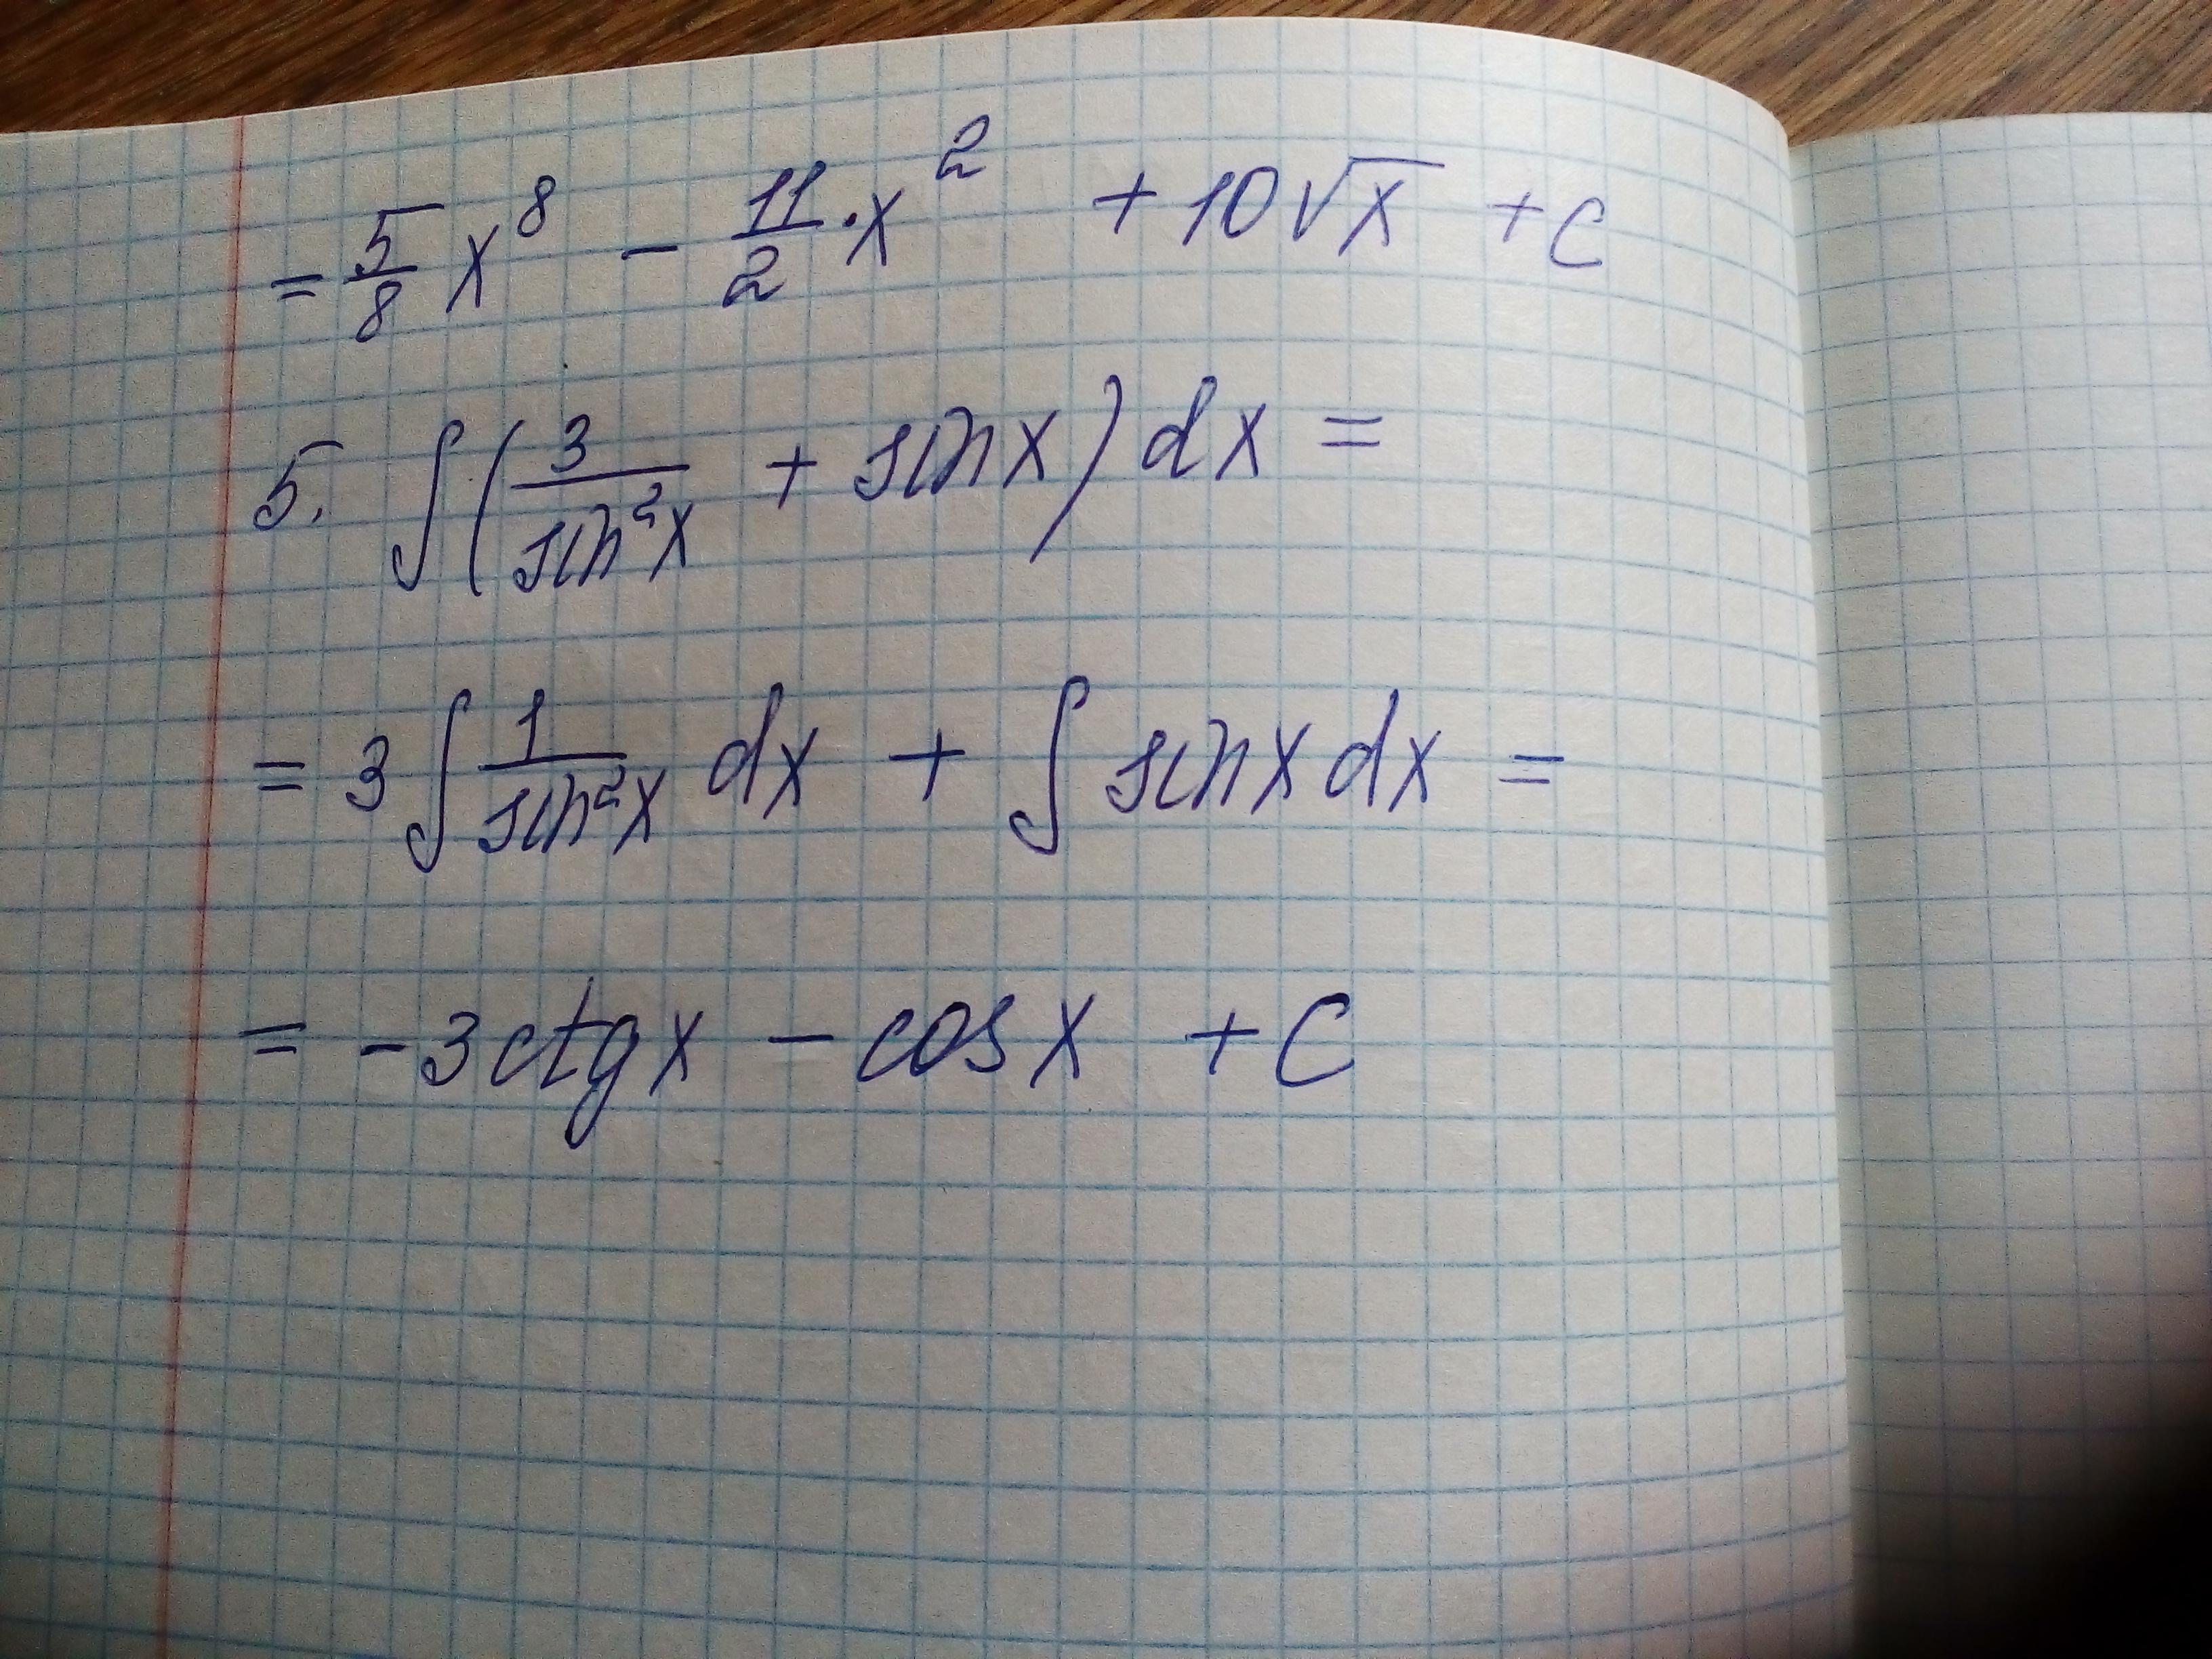 = 5/8 x⁸ - 11/2 · x² + 10√x + c
5. ∫(3/sin²x + sinx)dx =
= 3∫1/sin²x dx + ∫sinxdx =
= -3ctgx - cosx + C